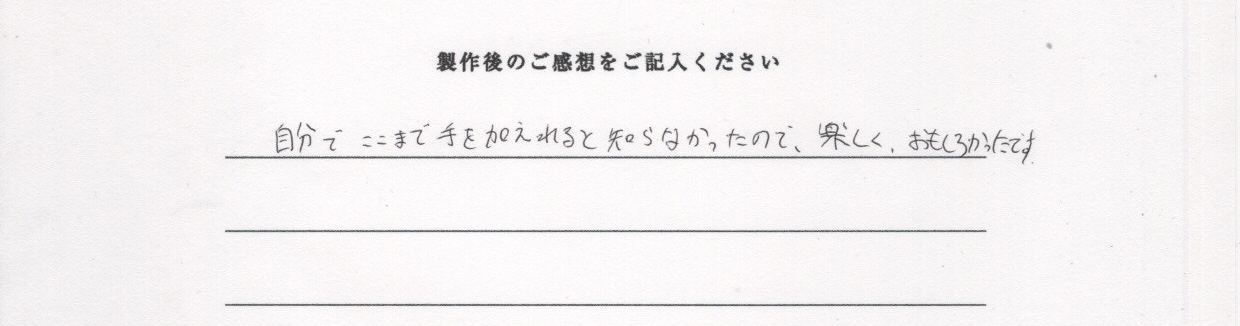 製作後のご感想をご記入ください
自分で ここまで 手を加えれると 知らなかったので、楽しく、おもしろかったです